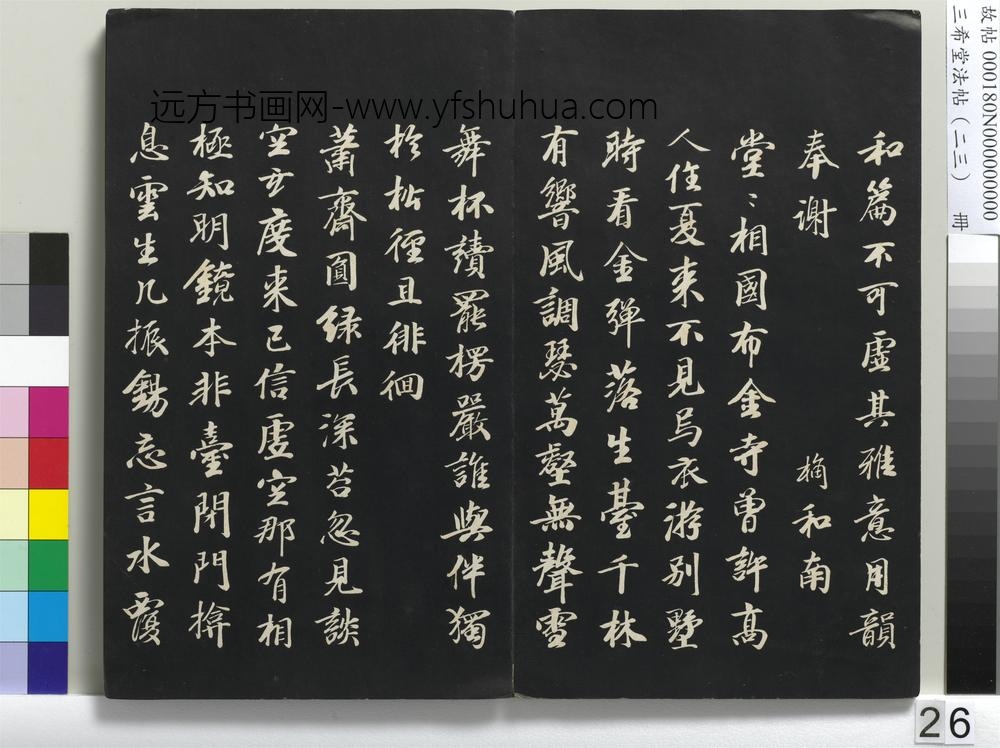 和篇不可虛其雅意用韻
奉謝 楠和南
堂〻相國布金寺曾許高
人住夏来不見烏衣游別墅
時看金彈落生臺千林
有響風調瑟萬壑無聲雪
舞杯讀罷楞嚴誰與伴獨
於松徑且徘徊
蕭齋圓緑長深苔忽見談
空玄度来已信虛空那有相
極知明鏡本非臺閉門揜
息雲生几振錫忘言水覆
远方书画网-www.yfshuhua.com
故帖 000180N000000000
三希堂法帖（二三） 冊
26